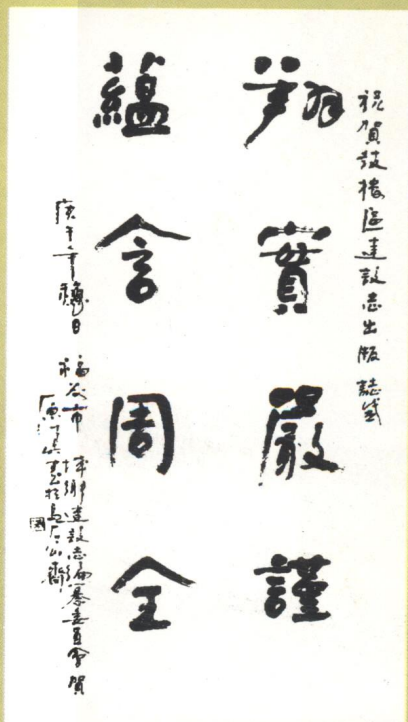 祝賀鼓樓區建設志出版誌盛
翔實嚴謹
蘊含周全
庚午年穐日 福州市城鄉建設志編纂委員會賀
書於烏石山齋